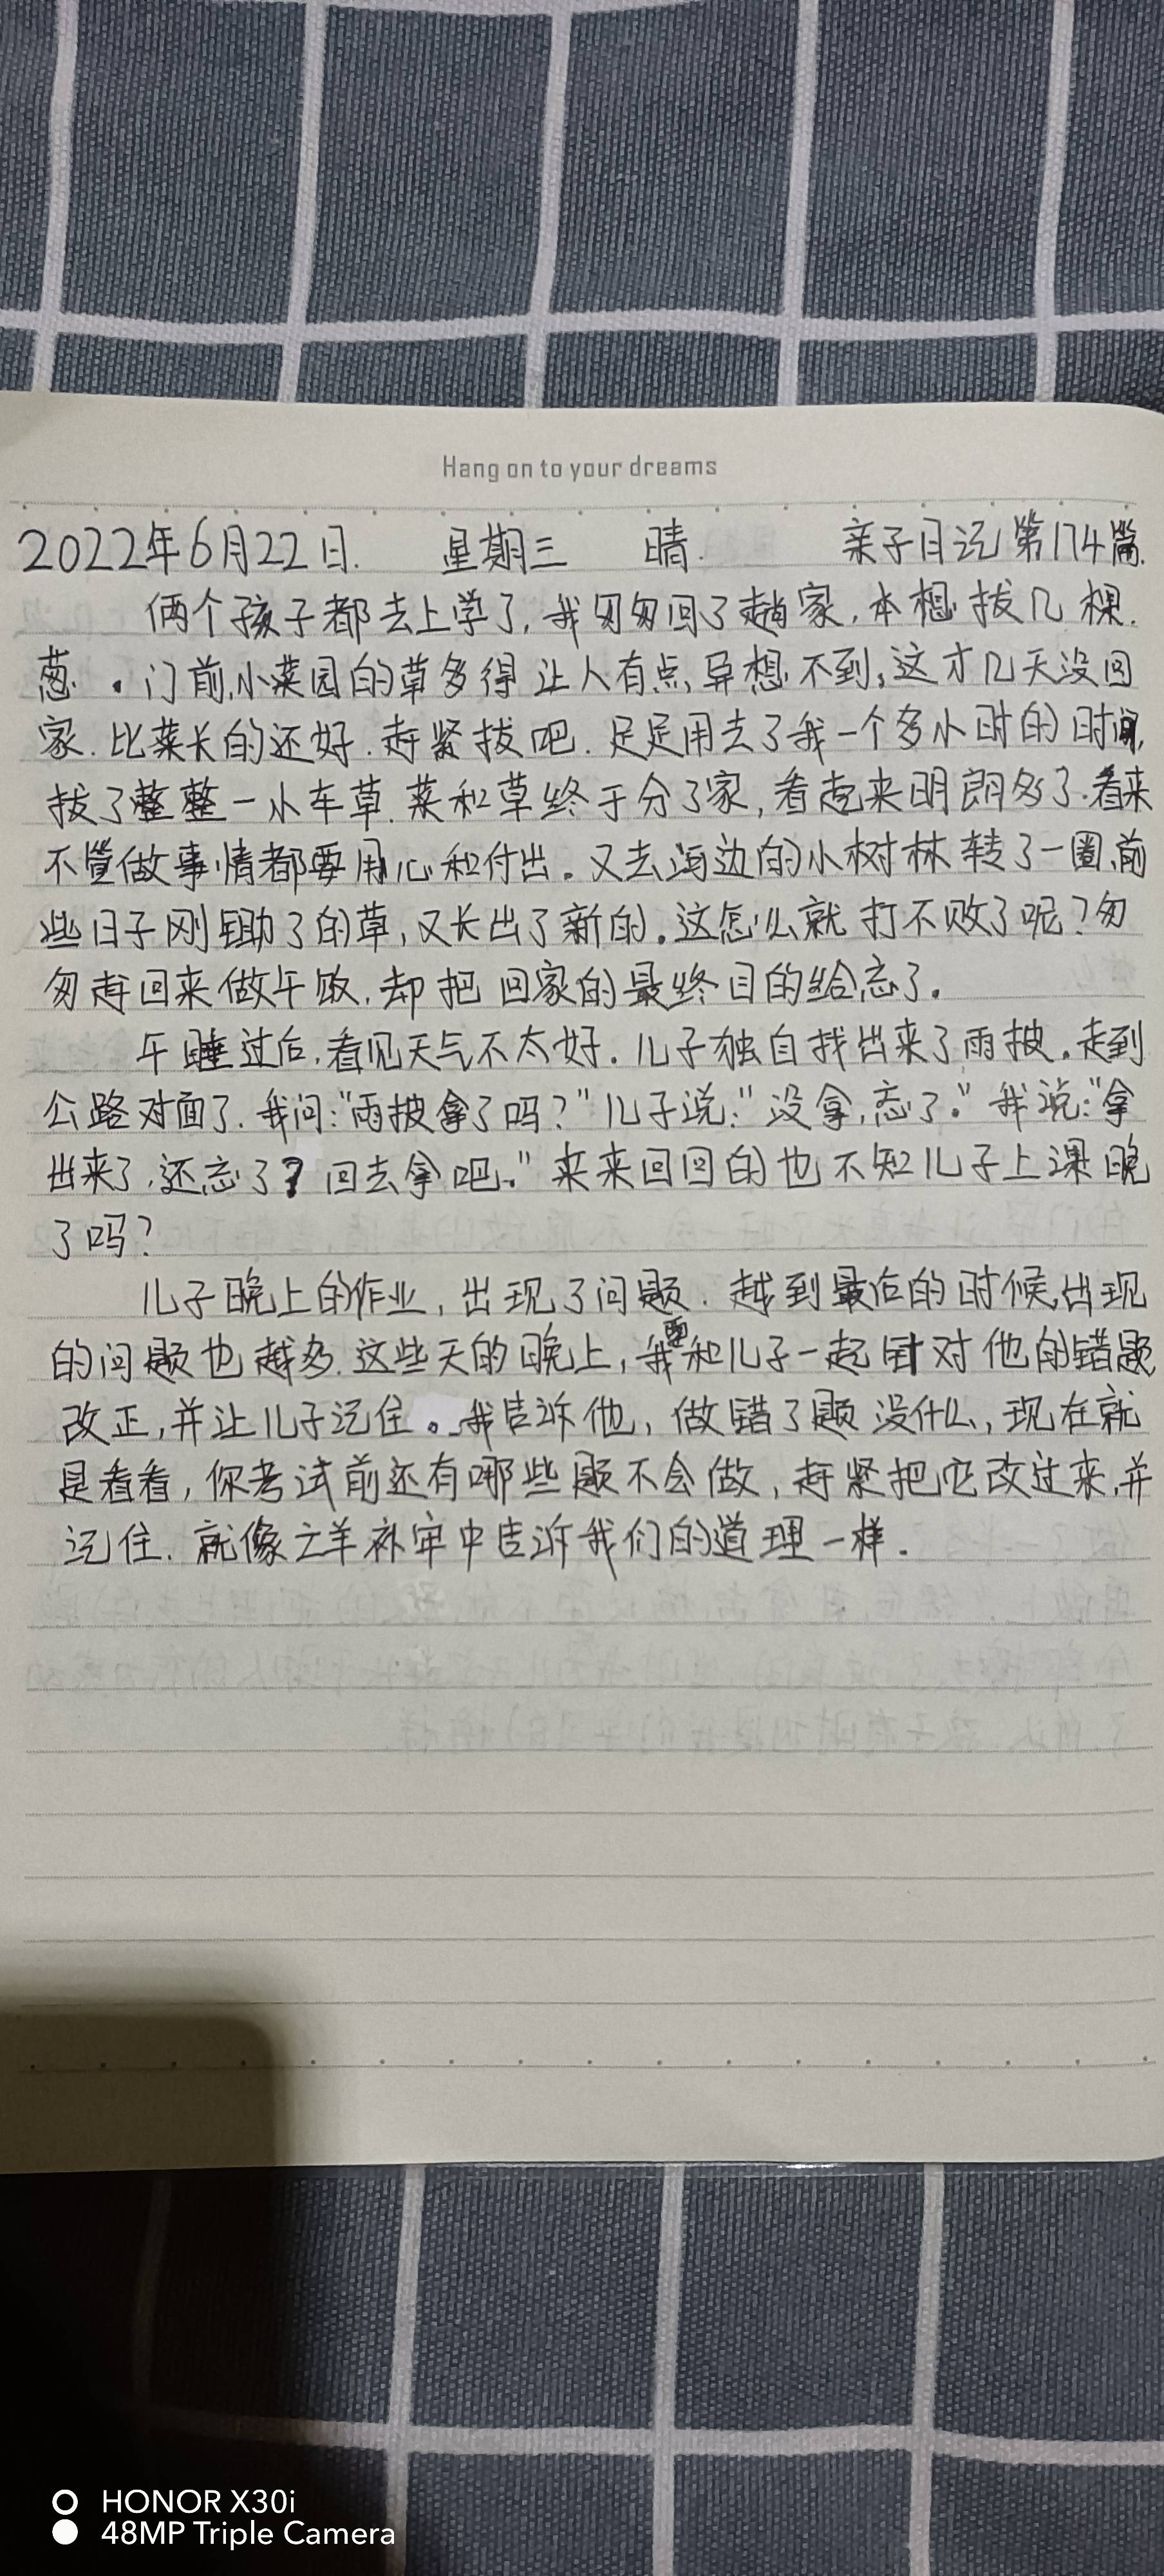 Hang on to your dreams
2022年6月22日. 星期三 晴. 亲子日记第174篇.
俩个孩子都去上学了,我匆匆回了趟家,本想拔几棵
葱.门前小菜园的草多得让人有点异想不到,这才几天没回
家.比菜长的还好.赶紧拔吧.足足用去了我一个多小时的时间,
拔了整整一小车草.菜和草终于分了家,看起来明朗多了.看来
不管做事情都要用心和付出。又去河边的小树林转了一圈,前
些日子刚锄了的草,又长出了新的。这怎么就打不败了呢?匆
匆赶回来做午饭,却把回家的最终目的给忘了。
午睡过后,看见天气不太好.儿子独自找出来了雨披。走到
公路对面了.我问:“雨披拿了吗?”儿子说:“没拿,忘了。”我说:“拿
出来了,还忘了?回去拿吧。”来来回回的也不知儿子上课晚
了吗?
儿子晚上的作业,出现了问题.越到最后的时候,出现
的问题也越多.这些天的晚上,我要和儿子一起针对他的错题
改正,并让儿子记住。我告诉他,做错了题没什么,现在就
是看看,你考试前还有哪些题不会做,赶紧把它改过来,并
记住.就像亡羊补牢中告诉我们的道理一样.
HONOR X30i
48MP Triple Camera